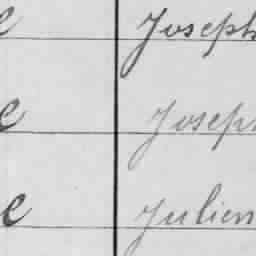 e Joseph
e Joseph
e Julien